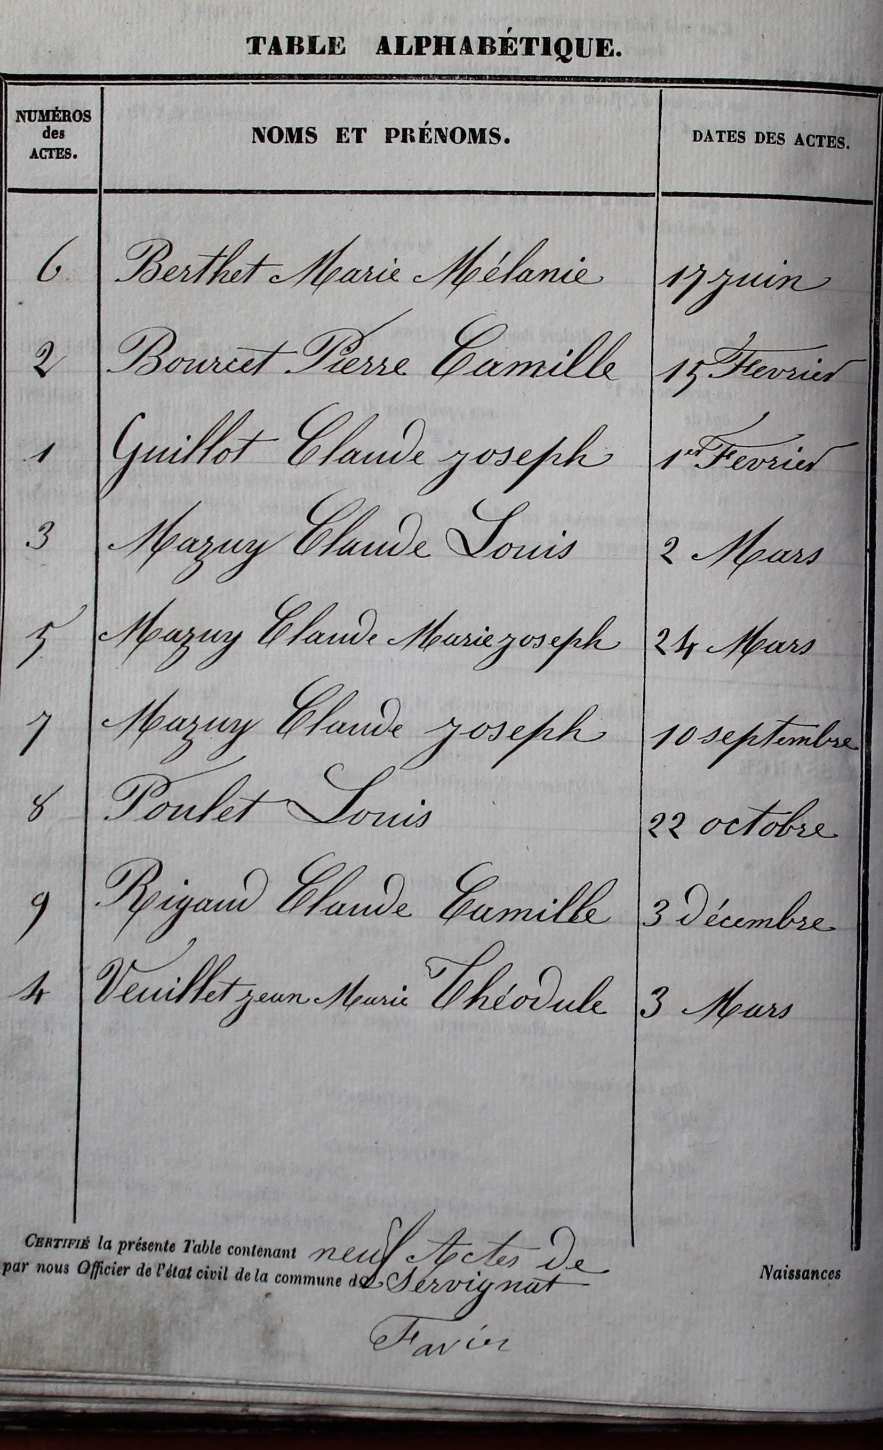 TABLE ALPHABÉTIQUE.
NUMÉROS des ACTES. NOMS ET PRÉNOMS. DATES DES ACTES.
6 Berthet Marie Mélanie 17 juin
2 Bourcet Pierre Camille 15 Fevrier
1 Guillot Claude joseph 1er Fevrier
3 Mazuy Claude Louis 2 Mars
5 Mazuy Claude Marie joseph 24 Mars
7 Mazuy Claude joseph 10 septembre
8 Poulet Louis 22 octobre
9 Rigaud Claude Camille 3 décembre
4 Veuillet jean Marie Théodule 3 Mars
CERTIFIÉ la présente Table contenant neuf Actes de Naissances
par nous Officier de l'état civil de la commune de Servignat
Favier